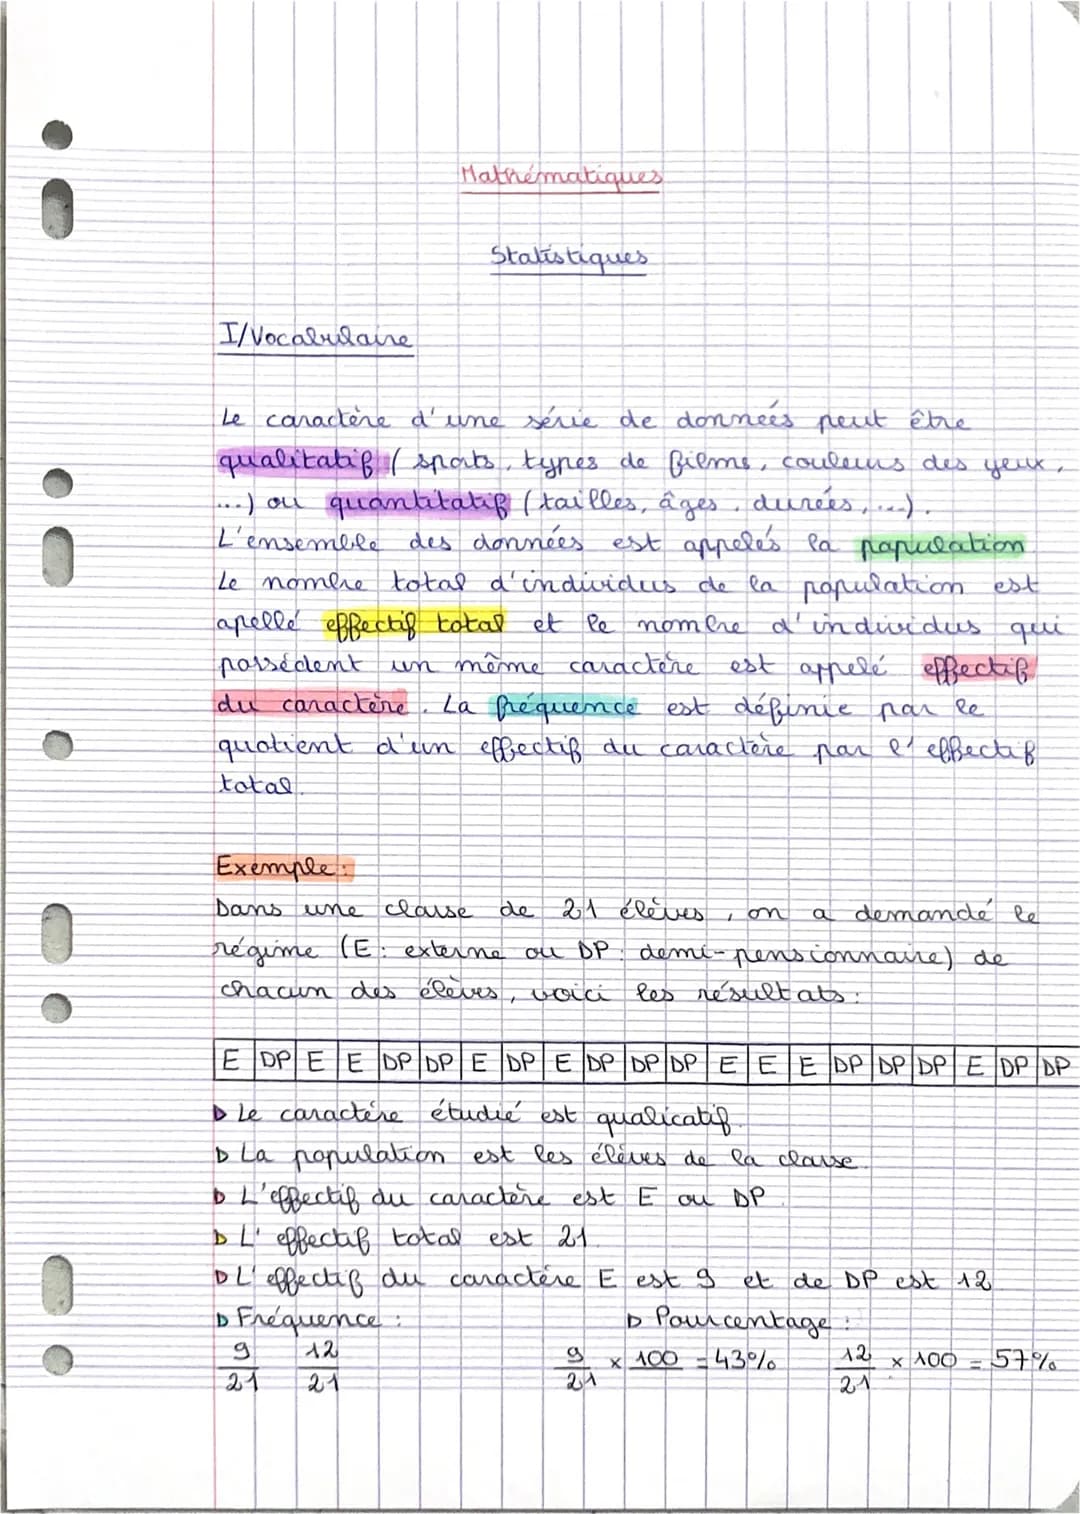 Mathématiques
Statistiques
I/Vocabulaire
Le caractère d'une série de données peut être
qualitatif ( sports, types de films, couleurs des yeux,
...) ou quantitatif (tailles, âges, durées, ...).
L'ensemble des données est appelés la population
Le nombre total d'individus de la population est
apellé effectif total et le nombre d'individus qui
possèdent un même caractère est appelé effectif
du caractère. La fréquence est définie par le
quotient d'un effectif du caractère par l'effectif
total.
Exemple :
Dans une classe de 21 élèves, on a demandé le
régime (E : externe ou DP : demi-pensionnaire) de
chacun des élèves, voici les résultats :
E DP E E DP DP E DP E DP DP DP E E E DP DP DP E DP DP
▷ Le caractère étudié est qualicatif.
▷ La population est les élèves de la classe.
▷ L'effectif du caractère est E ou DP.
▷ L'effectif total est 21.
▷ L'effectif du caractère E est 9 et de DP est 12
▷ Fréquence : ▷ Pourcentage :
9/21 12/21 9/21 × 100 = 43% 12/21 × 100 = 57%